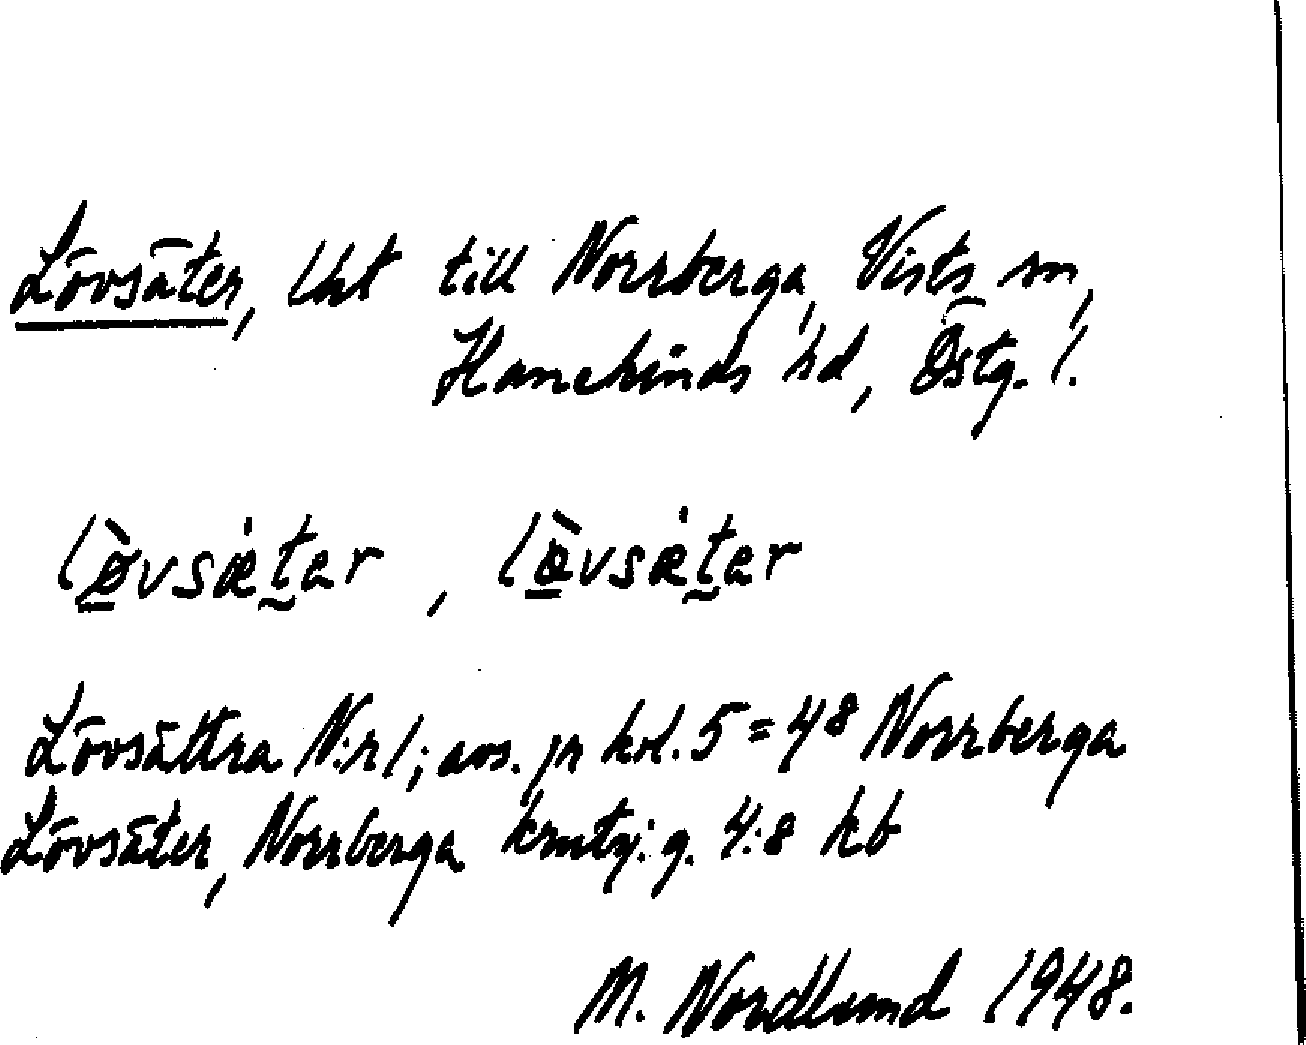 Lövsäter, lht till Norrberga, Vists sn,
Hanekinds hd, Östg. l.
lø̀vsæ̇ter, lœ̀vsæ̇ter
Lövsättra N:r 1; avs. jr kol. 5 = 4⁸ Norrberga
Lövsäter, Norrberga g. 4:8 kb
M. Nordlund 1948.